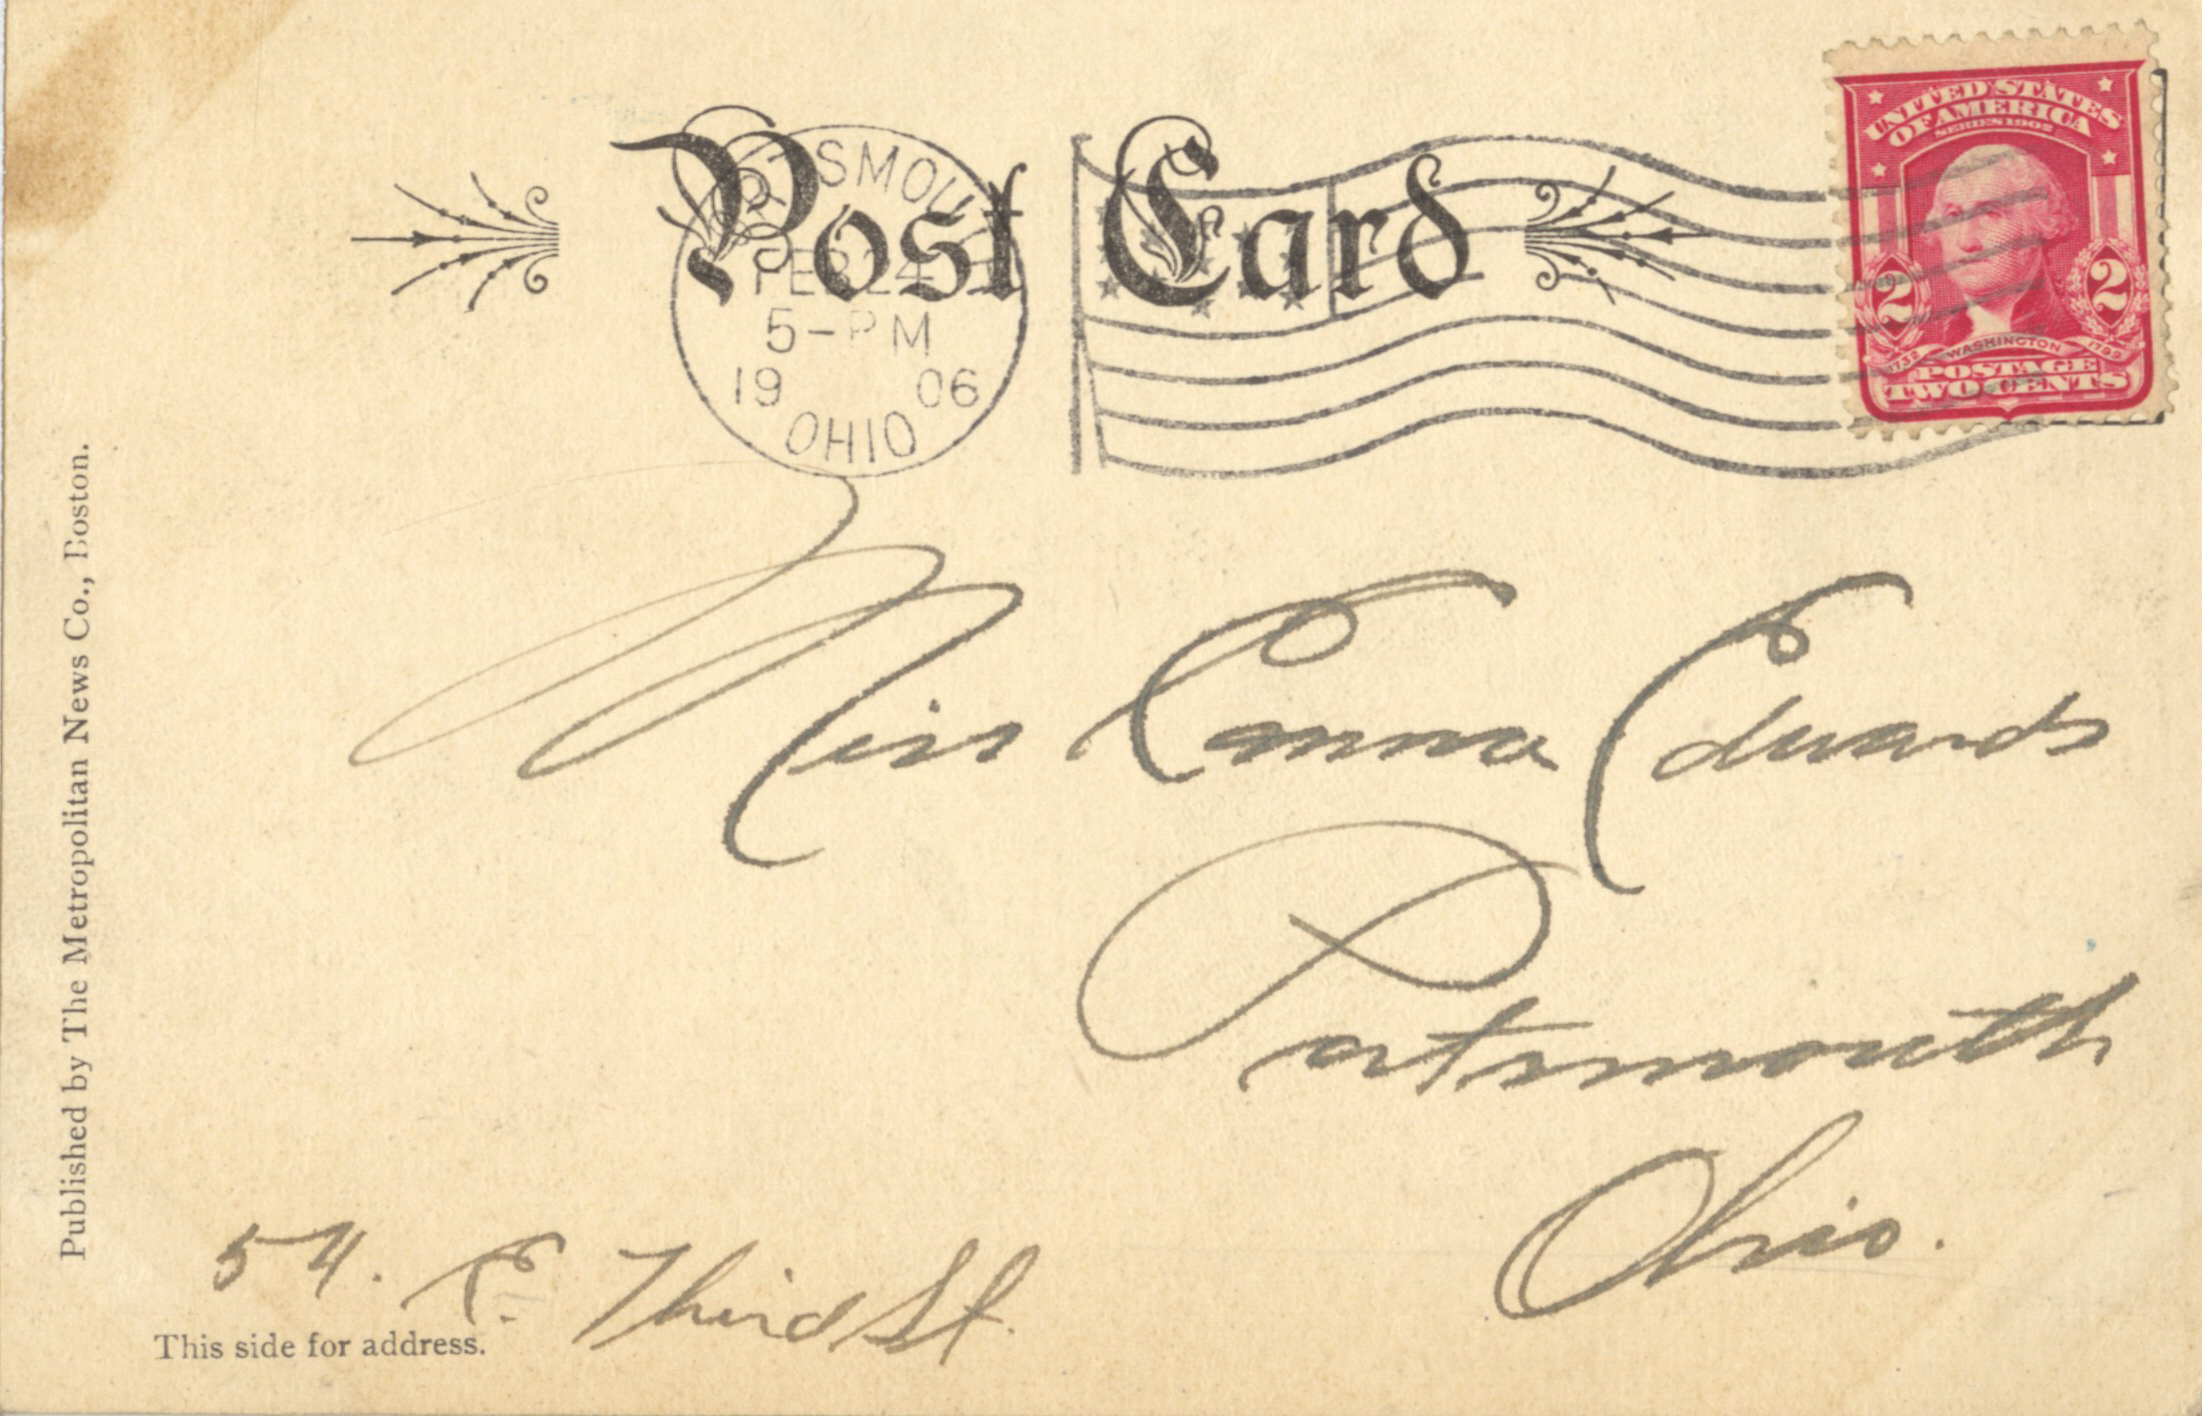 Post Card
PORTSMOUTH
FEB 24
5-PM
19 06
OHIO
UNITED STATES
OF AMERICA
SERIES 1902
2 2
1732 WASHINGTON 1799
POSTAGE
TWO CENTS
Miss Emma Edwards
Portsmouth
Ohio.
54. E. Third St.
This side for address.
Published by The Metropolitan News Co., Boston.